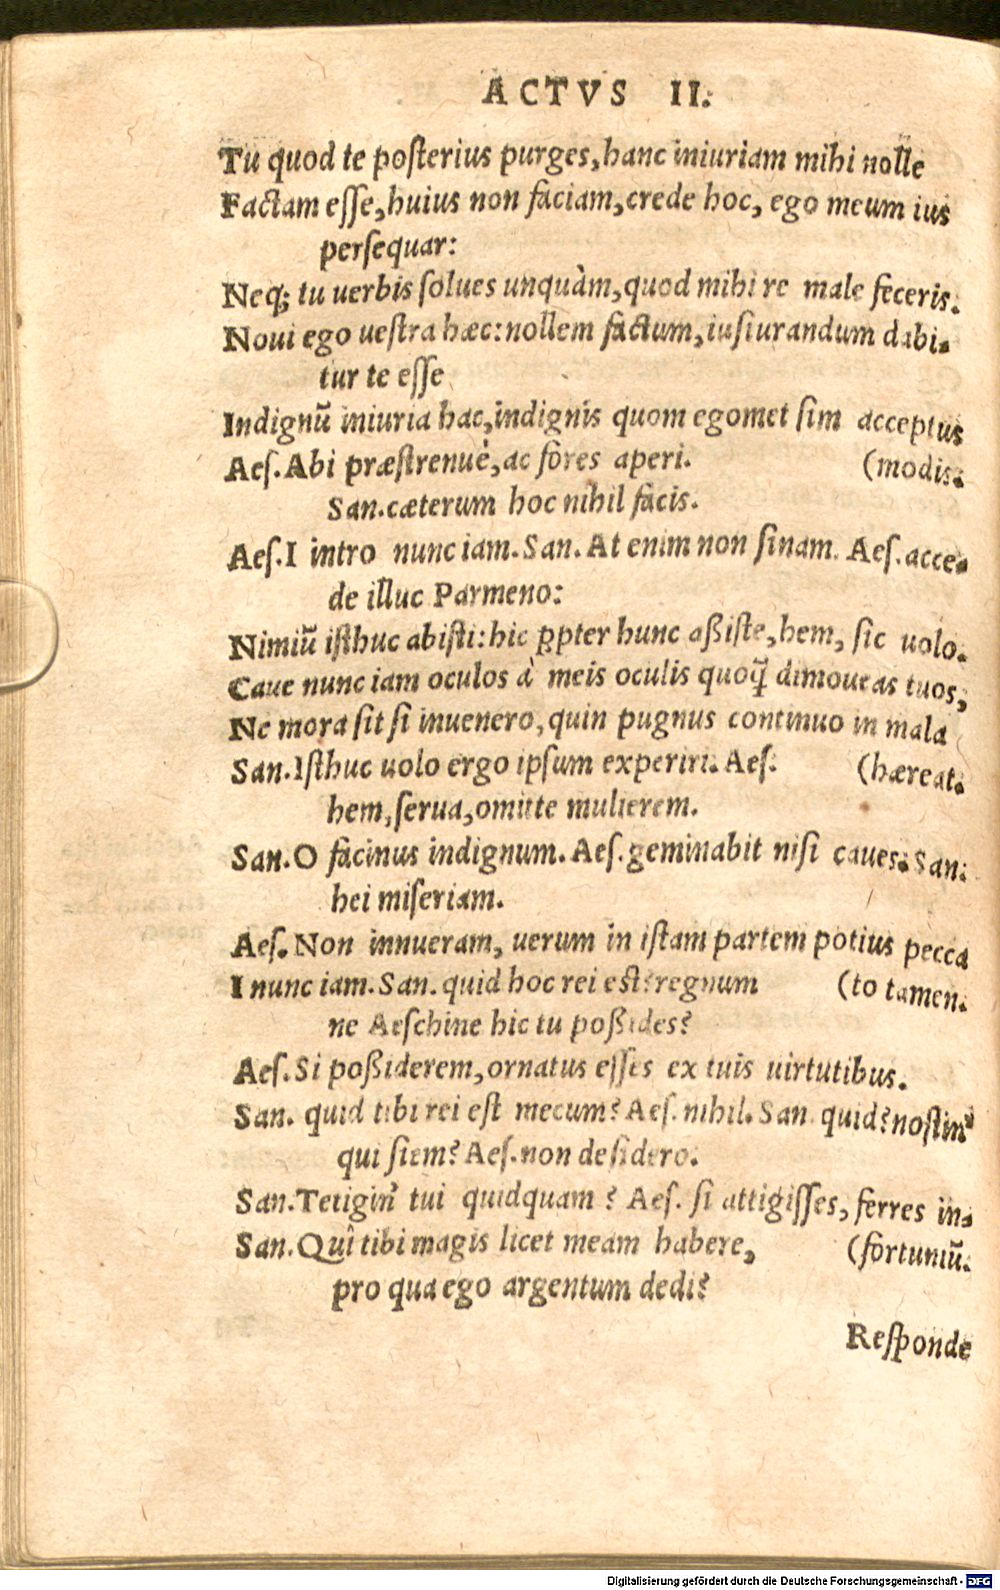 ACTVS II.
Tu quod te poſterius purges, hanc iniuriam mihi nolle
Factam eſſe, huius non faciam, crede hoc, ego meum ius
perſequar:
Neq; tu uerbis ſolues unquàm, quod mihi re male feceris.
Noui ego ueſtra hæc: nollem factum, iuſiurandum dabi-
tur te eſſe
Indignū iniuria hac, indignis quom egomet ſim acceptus
Aeſ. Abi præſtrenuè, ac fores aperi. (modis:
San. cæterum hoc nihil facis.
Aeſ. I intro nunc iam. San. At enim non ſinam. Aeſ. acce-
de illuc Parmeno:
Nimiū iſthuc abiſti: hic ꝓpter hunc aßiſte, hem, ſic uolo.
Caue nunc iam oculos à meis oculis quoq̃ dimoueas tuos,
Ne mora ſit ſi inuenero, quin pugnus continuo in mala
San. Iſthuc uolo ergo ipſum experiri. Aeſ. (hæreat.
hem, ſerua, omitte mulierem.
San. O facinus indignum. Aeſ. geminabit niſi caues. San.
hei miſeriam.
Aeſ. Non innueram, uerum in iſtam partem potius pecca
I nunc iam. San. quid hoc rei eſt? regnum (to tamen.
ne Aeſchine hic tu poßides?
Aeſ. Si poßiderem, ornatus eſſes ex tuis uirtutibus.
San. quid tibi rei eſt mecum? Aeſ. nihil. San. quid? noſtin'
qui ſiem? Aeſ. non deſidero.
San. Tetigin' tui quidquam? Aeſ. ſi attigiſſes, ferres in-
San. Quî tibi magis licet meam habere, (fortuniū.
pro qua ego argentum dedi?
Reſponde
Digitalisierung gefördert durch die Deutsche Forschungsgemeinschaft - DFG